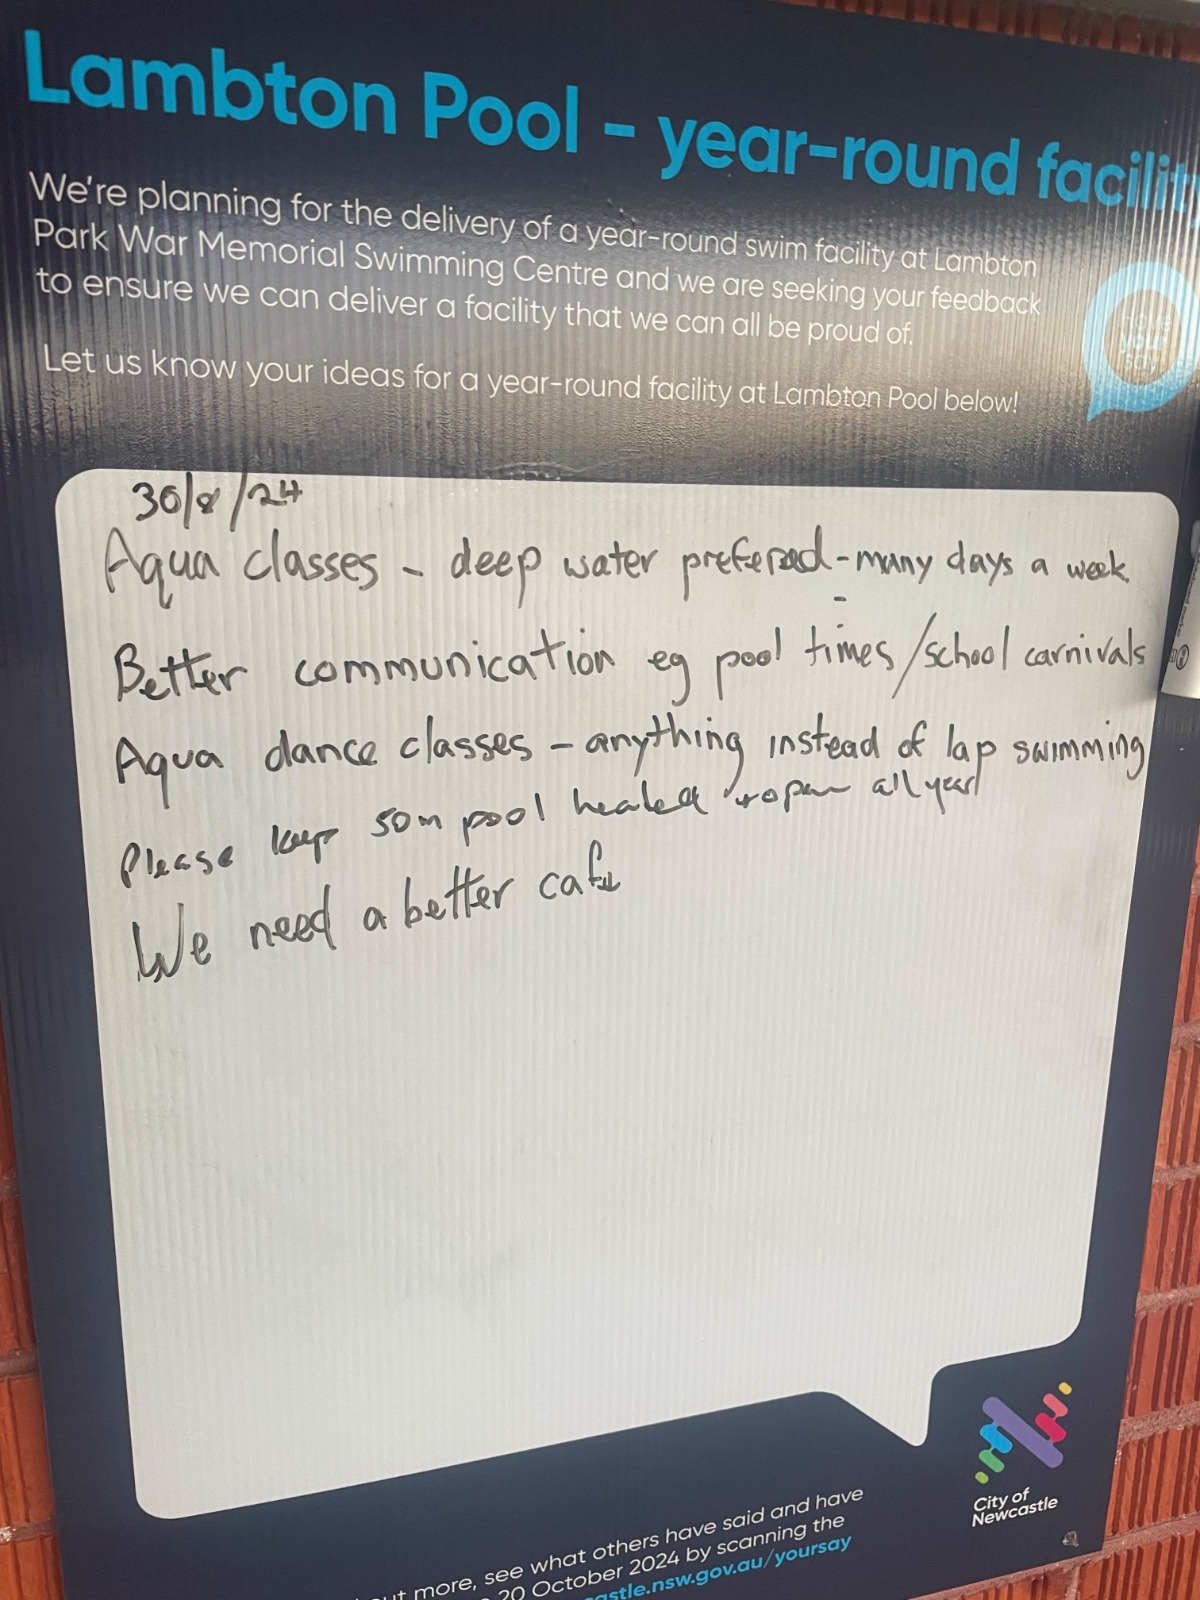 Lambton Pool - year-round facility
We're planning for the delivery of a year-round swim facility at Lambton
Park War Memorial Swimming Centre and we are seeking your feedback
to ensure we can deliver a facility that we can all be proud of.
Let us know your ideas for a year-round facility at Lambton Pool below!
have
your
say
30/8/24
Aqua classes - deep water prefered - many days a week.
Better communication eg pool times/school carnivals
Aqua dance classes - anything instead of lap swimming
Please keep 50m pool heated + open all year
We need a better cafe
City of
Newcastle
more, see what others have said and have
20 October 2024 by scanning the
astle.nsw.gov.au/yoursay